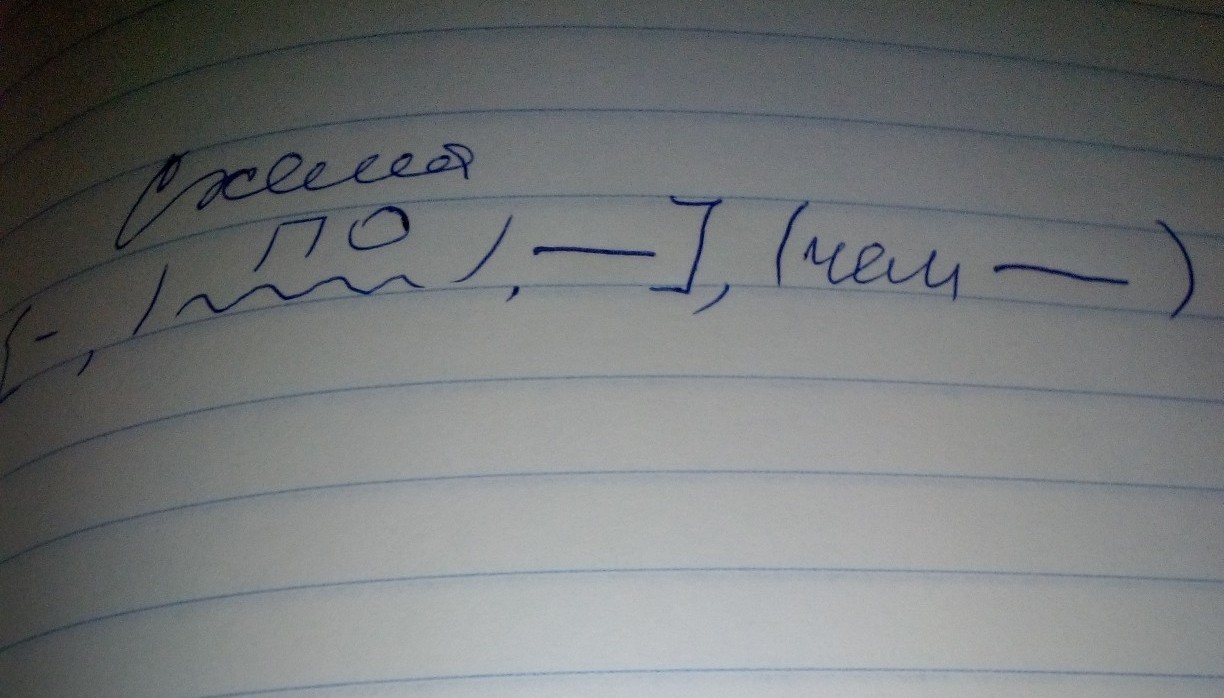 Схема
[-, | ПО |, —], (чем —)